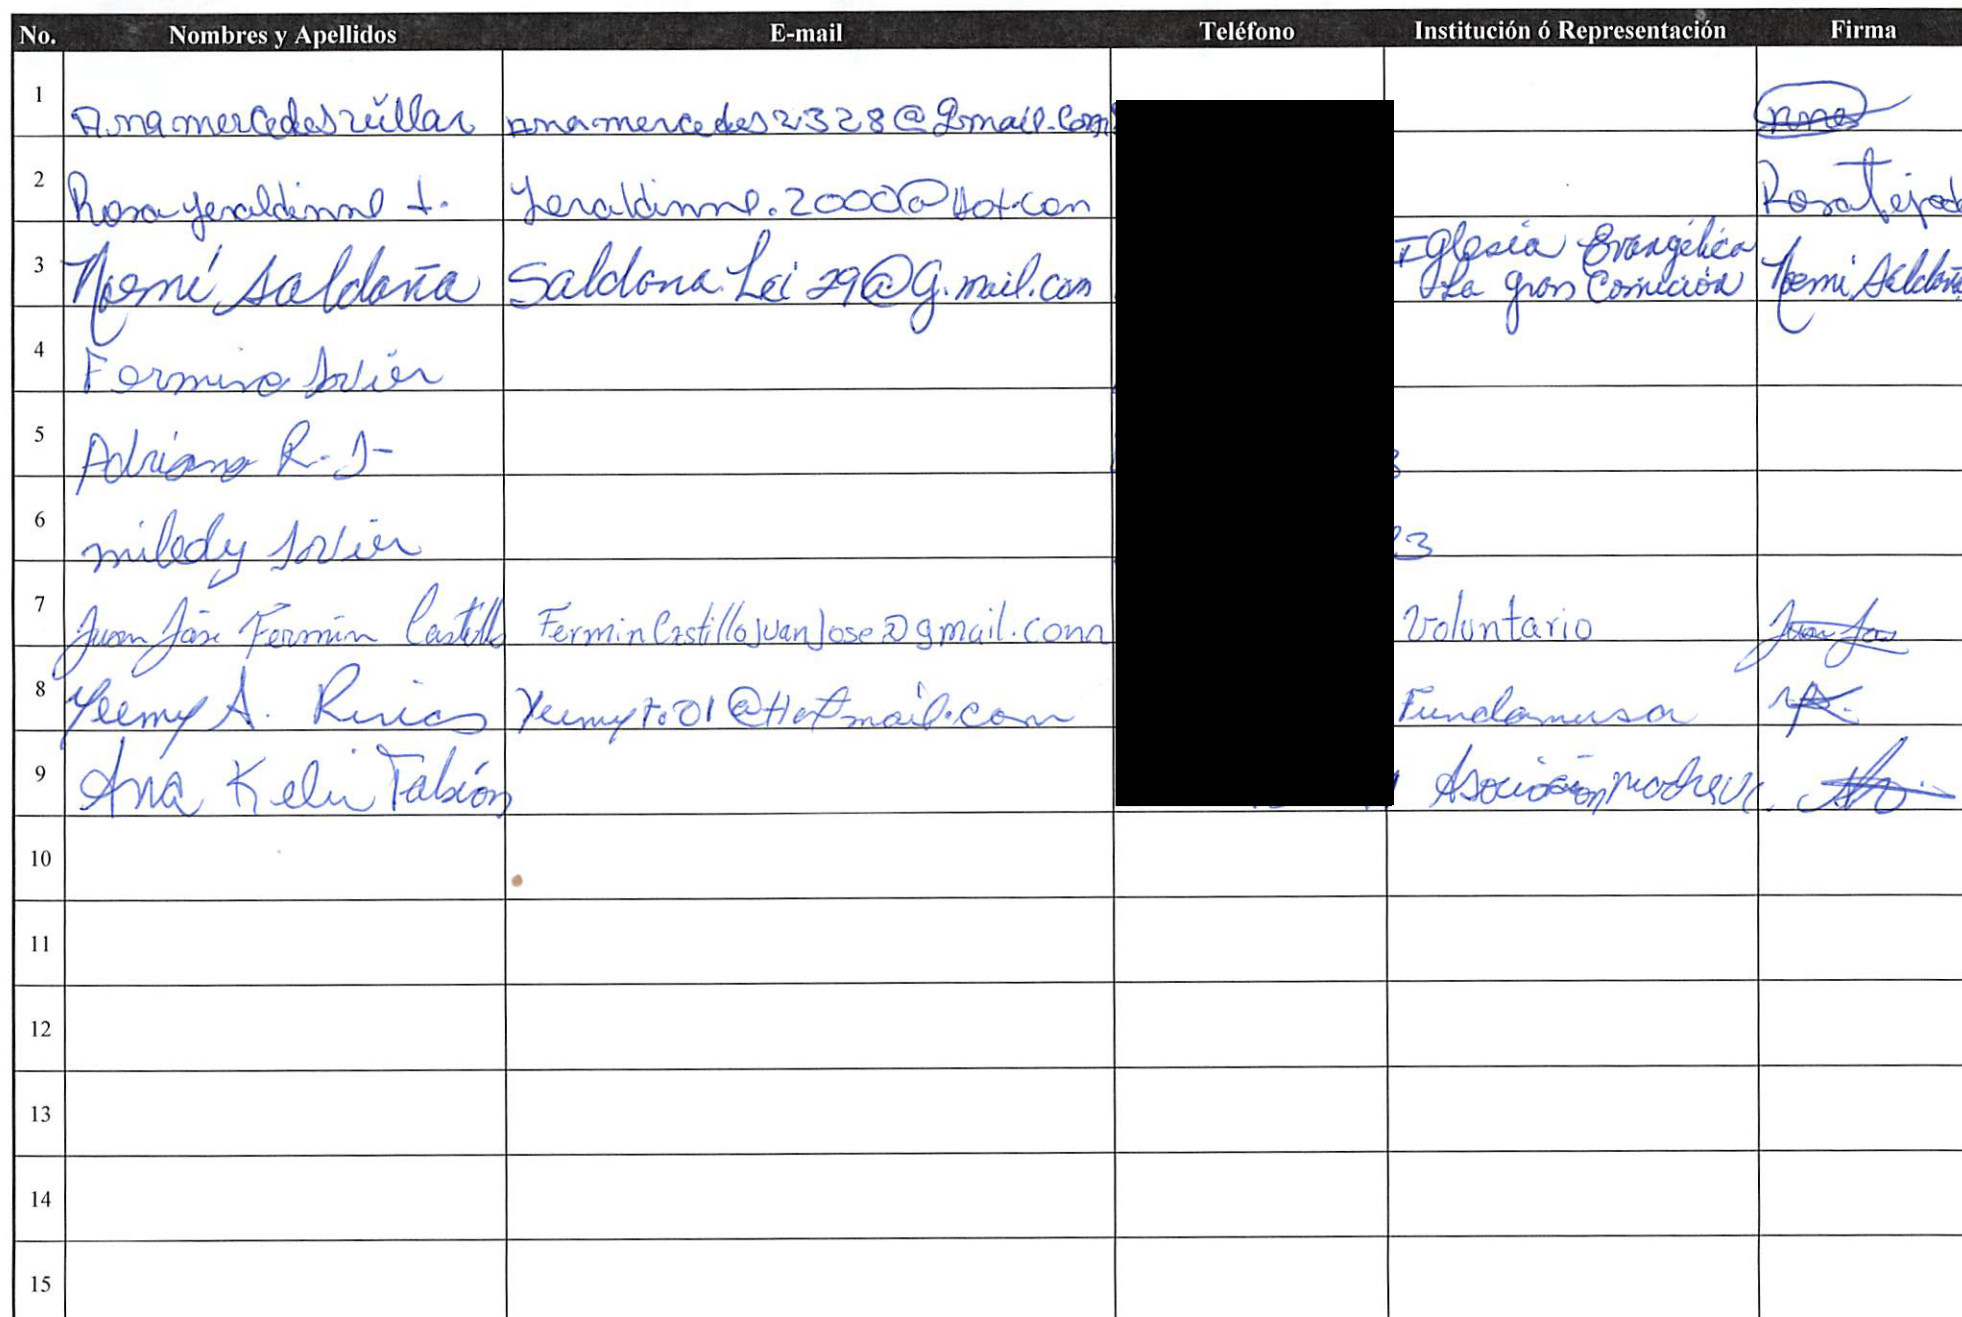 No. Nombres y Apellidos E-mail Teléfono Institución ó Representación Firma
1 Anamercedes anamercedes2328@gmail.com
2 Rosa yeraldinne t. yeraldinne.2000@Hot.con Rosa Tejada
3 Noemí Saldaña Saldana.Lei29@g.mail.com Iglesia Evangélica
La gran Comición Noemí Saldaña
4 Fermina Javier
5 Adriano R. J-
6 milody Javier 23
7 Juan José Fermin Castillo FerminCastilloJuanJose@gmail.com Voluntario Juan Jose
8 Yeemy A. Rivas @Hotmail.com Fundamusa
9 Ana Keli Fabión Asociación
10
11
12
13
14
15